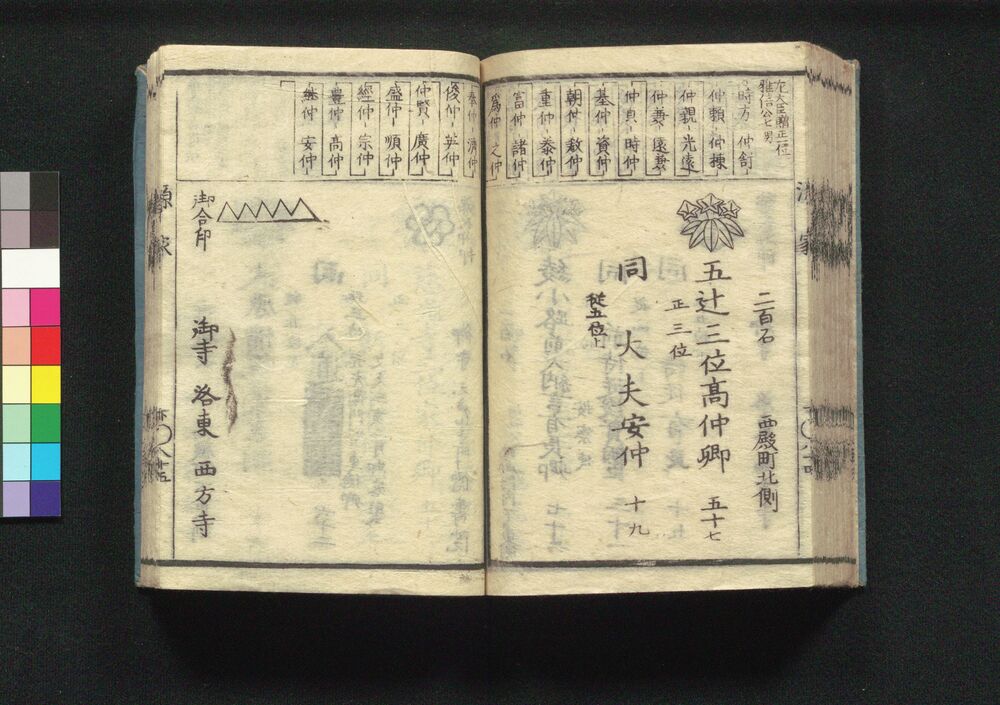 左大臣贈正一位
雅信公七男
時方 仲舒
仲頼 仲棟
仲親 光遠
仲兼 遠兼
仲貞 時仲
基仲 資仲
朝仲 敎仲
重仲 泰仲
富仲 諸仲
爲仲 之仲
奉仲 濟仲
俊仲 英仲
仲賢 廣仲
盛仲 順仲
經仲 宗仲
豊仲 高仲
繼仲 安仲
源家
二百石 西殿町北側
五辻三位高仲卿 五十七
正三位
同 大夫安仲 十九
從五位上
御合印
御寺 洛東 西方寺
源家